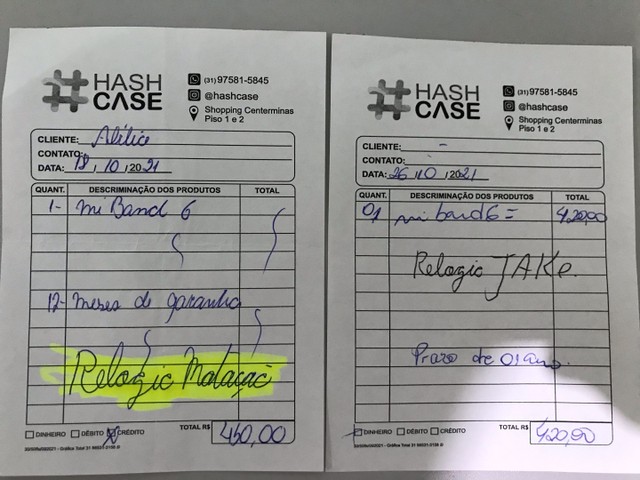 HASH
CASE
(31) 97581-5845
@hashcase
Shopping Centerminas
Piso 1 e 2
CLIENTE:
CONTATO:
DATA: 18 / 10 / 2021
QUANT. DESCRIMINAÇÃO DOS PRODUTOS TOTAL
1- mi Band 6
12- meses de garantia
Relogio Natação
DINHEIRO DÉBITO CRÉDITO TOTAL R$ 450,00
HASH
CASE
(31) 97581-5845
@hashcase
Shopping Centerminas
Piso 1 e 2
CLIENTE: -
CONTATO: -
DATA: 26 / 10 / 2021
QUANT. DESCRIMINAÇÃO DOS PRODUTOS TOTAL
01 mi band 6 = 420,00
Relogio JAKE.
Prazo de 01 ano.
DINHEIRO DÉBITO CRÉDITO TOTAL R$ 420,00